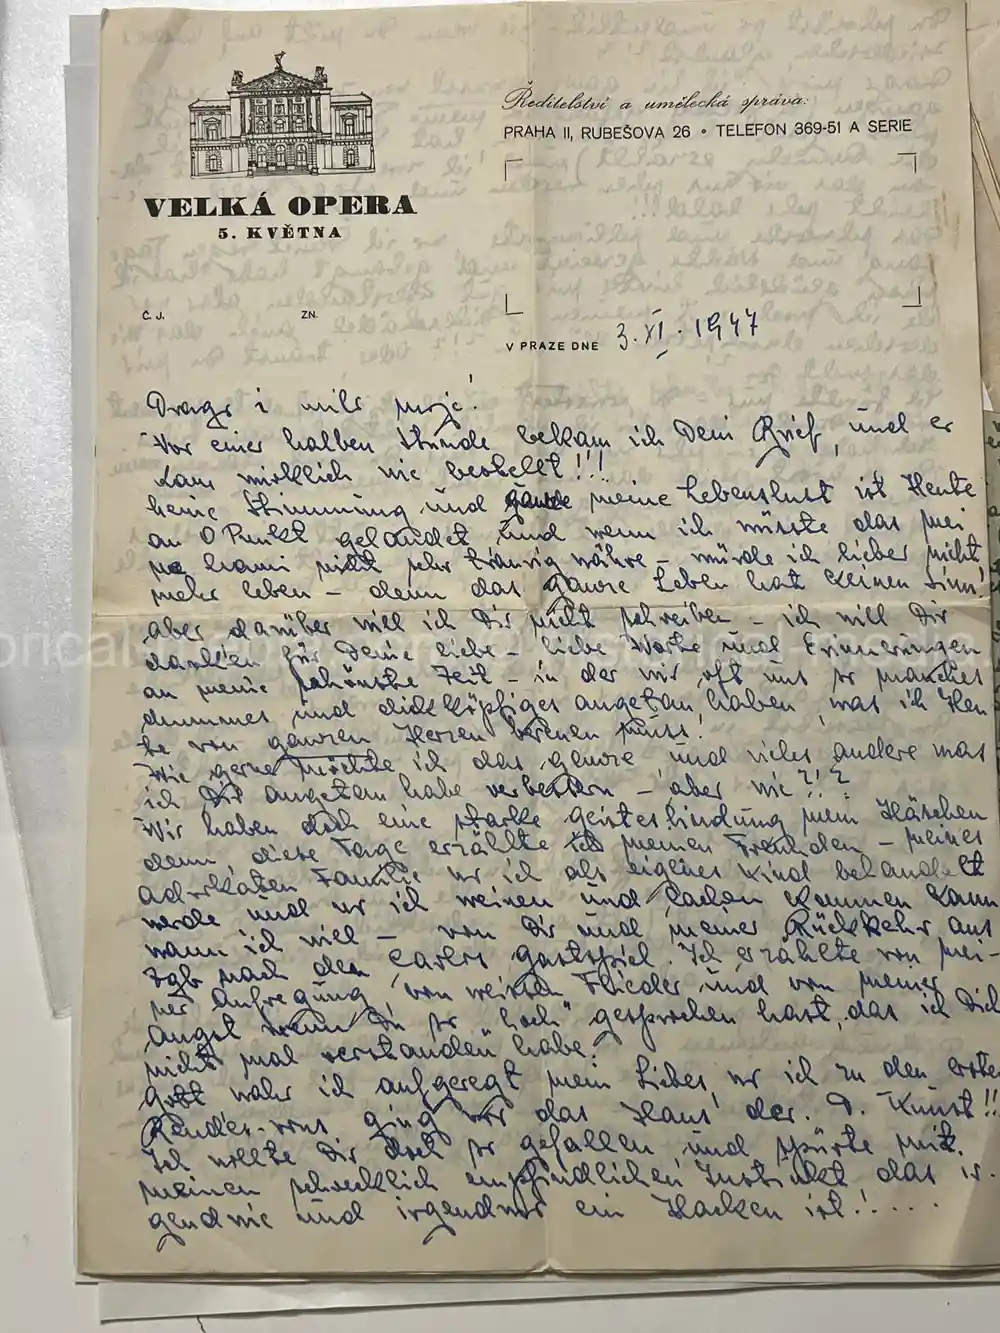 Ředitelství a umělecká správa:
PRAHA II, RUBEŠOVA 26 • TELEFON 369-51 A SERIE
VELKÁ OPERA
5. KVĚTNA
Č. J. ZN.
V PRAZE DNE 3. XI. 1947
Drago i milo moje!
Vor einer halben Stunde bekam ich Dein Brief, und er
kam wirklich wie bestellt!!!
keine Stimmung und meine Lebenslust ist Heute
an 0 Punkt gelandet und wenn ich wüsste das mei
ne mami nicht sehr traurig währe – würde ich lieber nicht
mehr leben – denn das ganze Leben hat keinen Sinn,
aber darüber will ich Dir nicht schreiben – ich will Dir
danken für Deine liebe – liebe Worte und Erinnerungen
an meine schönste Zeit – in der wir oft uns so manches
dummes und dickköpfiges angetan haben, was ich Heu
te von ganzen Herzen bereuen muss!
Wie gerne möchte ich das ganze und vieles andere was
ich Dir angetan habe verbessern – aber wie?!?
Wir haben doch eine starke geistesbindung mein Häschen
denn, diese Tage erzählte ich meinen Freunden – meines
advokaten Familie wo ich als eigenes Kind behandelt
werde und wo ich weinen und lachen kommen kann
wann ich will – von Dir und meiner Rückkehr aus
Zgb nach den Carlos gastspiel. Ich erzählte von mei-
ner Aufregung, von weissen Flieder und von meiner
Angst wenn Du so „hoch" gesprochen hast, das ich Dich
nicht mal verstanden habe.
Gott wahr ich aufgeregt mein Liebes wo ich zu den erste
Rendez-vous ging vor das Haus der. D. Kunst!!
Ich wollte Dir doch so gefallen und spürte mit
meinen schrecklich empfindlichen Instinkt das ir-
gendwie und irgendwo ein Hacken ist!.....